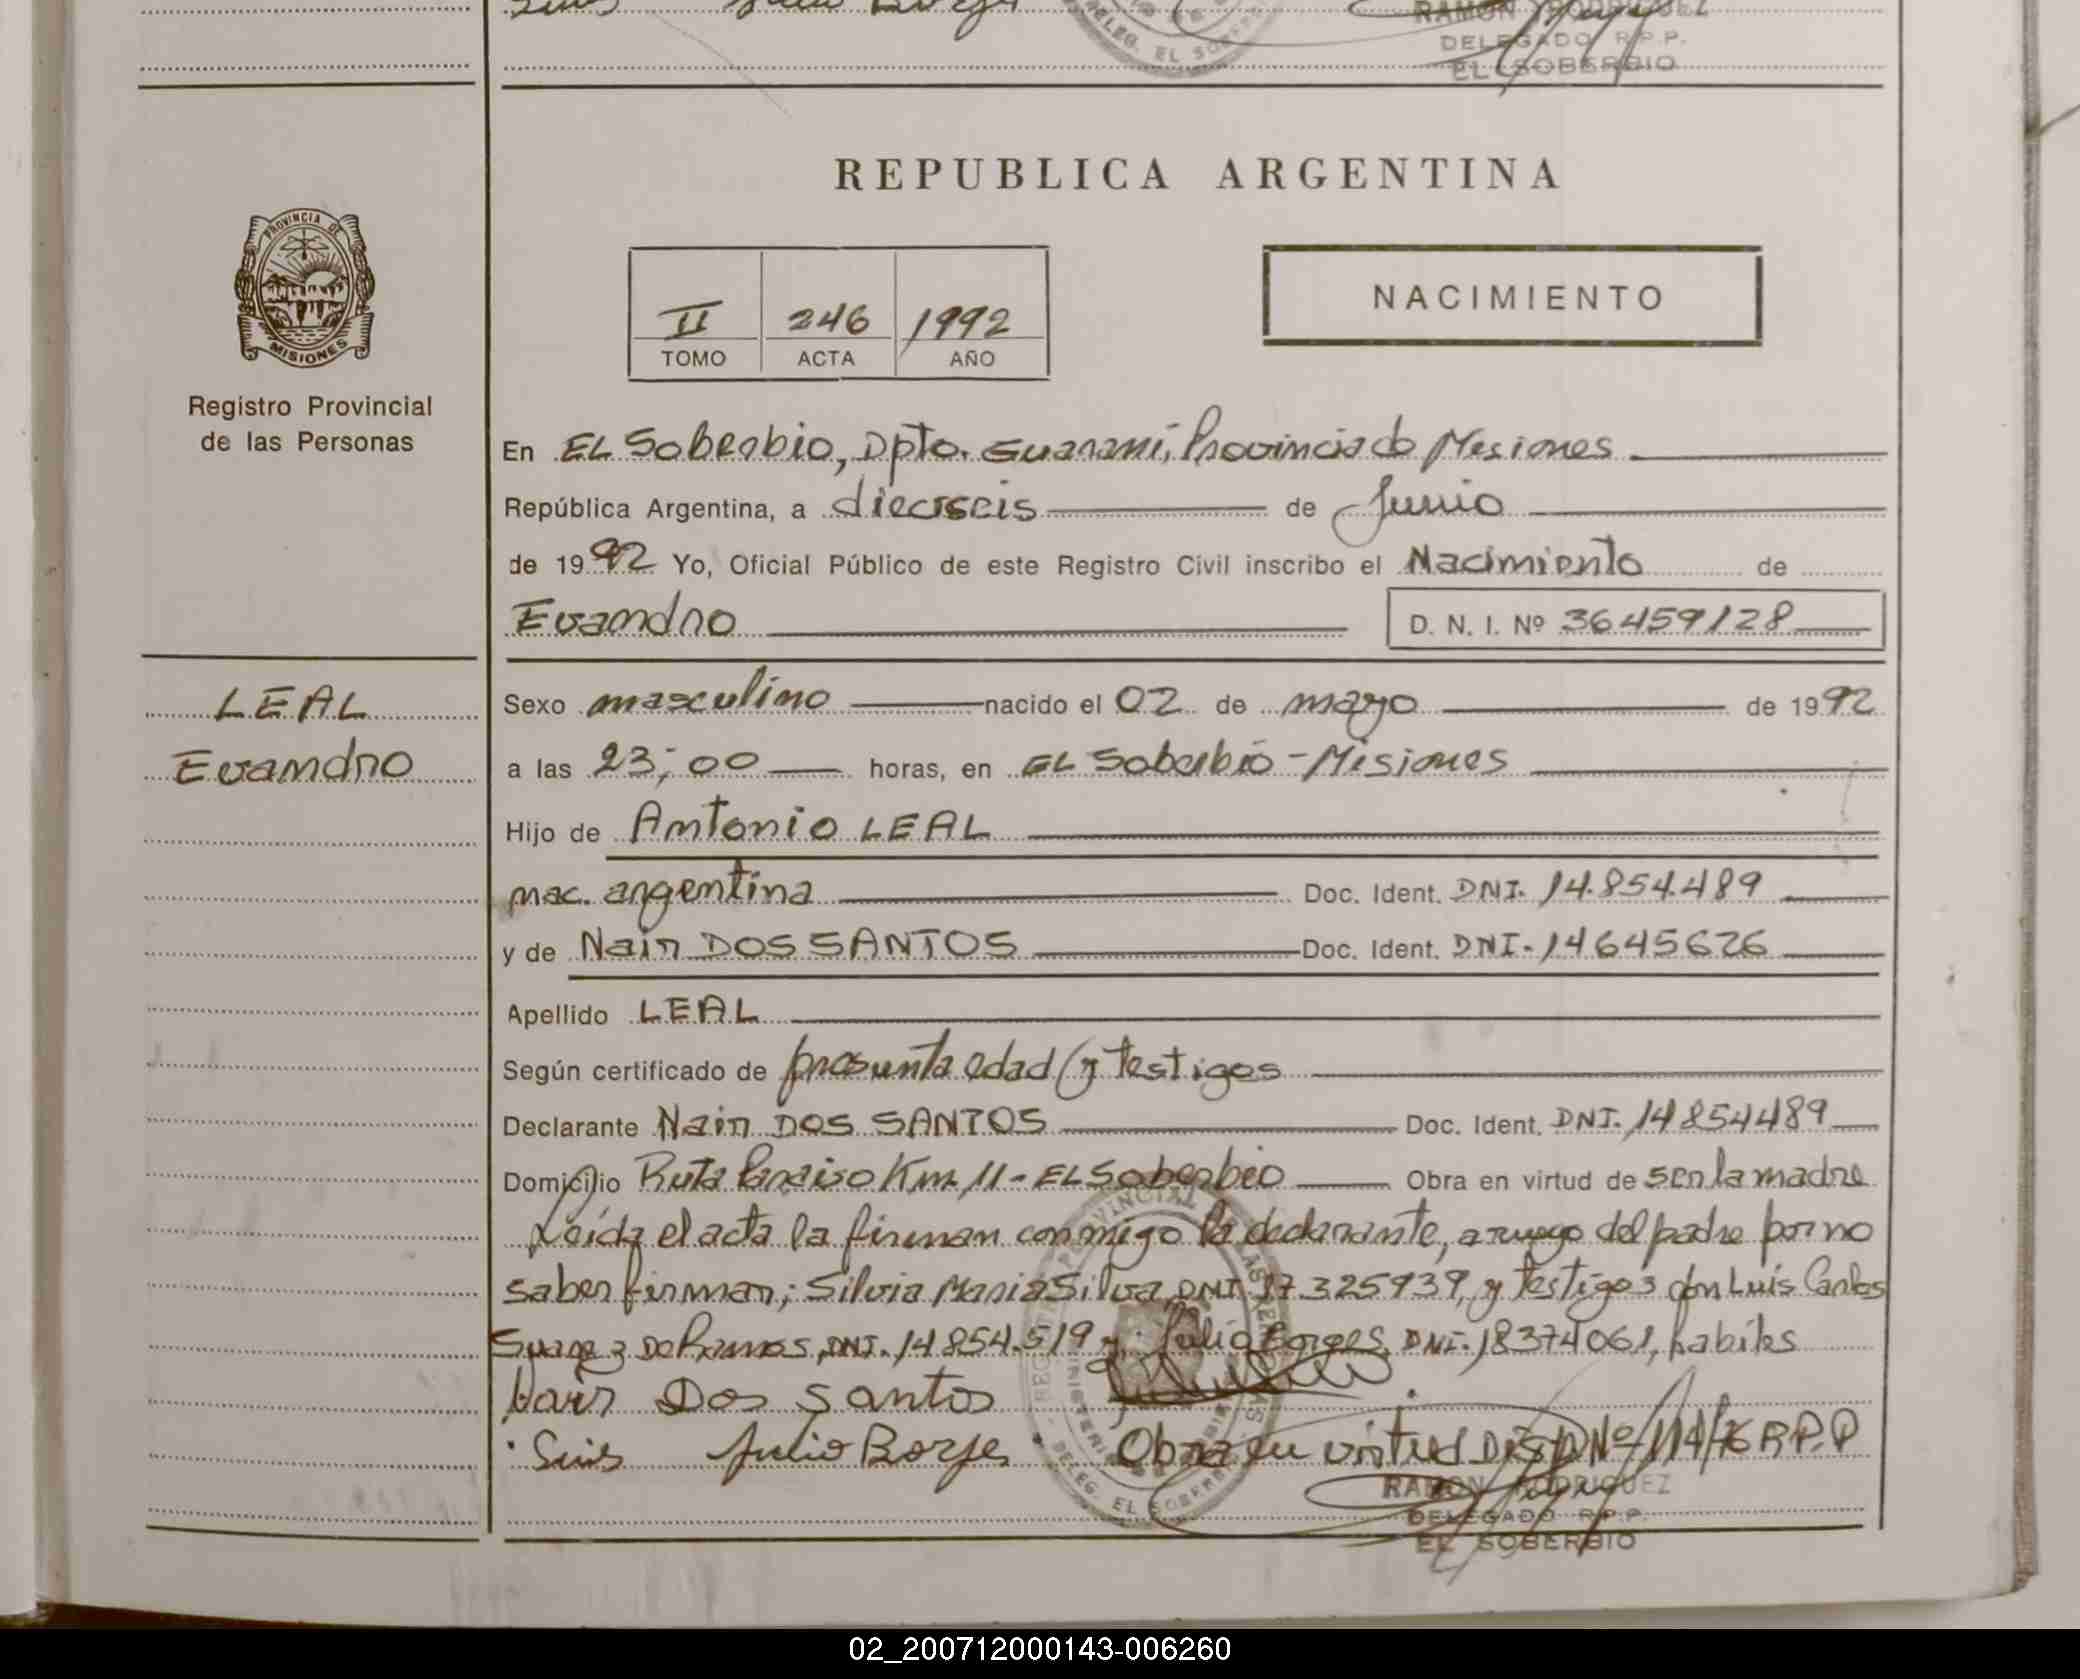 RAMON RODRIGUEZ
DELEG. EL SOBERBIO
DELEGADO R.P.P.
EL SOBERBIO
REPUBLICA ARGENTINA
PROVINCIA DE
MISIONES
Registro Provincial
de las Personas
II 246 1992
TOMO ACTA AÑO
NACIMIENTO
En EL Soberbio, Dpto. Guaraní, Provincia de Misiones
República Argentina, a dieciseis de Junio
de 1992 Yo, Oficial Público de este Registro Civil inscribo el Nacimiento de
Evandro D. N. I. Nº 36459128
LEAL
Evandro
Sexo masculino nacido el 02 de mayo de 1992
a las 23;00 horas, en EL Soberbio - Misiones
Hijo de Antonio LEAL
nac. argentina Doc. Ident. DNI. 14.854.489
y de Nair DOS SANTOS Doc. Ident. DNI. 14645626
Apellido LEAL
Según certificado de presunta edad y testigos
Declarante Nair DOS SANTOS Doc. Ident. DNI. 14854489
Domicilio Ruta Paraiso Km. 11 - EL Soberbio Obra en virtud de ser la madre
Leída el acta la firman conmigo la declarante, a ruego del padre por no
saber firmar; Silvia Maria Silva DNI 17.325939, y testigos don Luis Carlos
Suarez De Ramos, DNI. 14854.519 y Julio Borges, DNI. 18374061, habiles
Nair Dos Santos
Luis Julio Borges Obra en virtud Disp Nº 114/76 R.P.P
RAMON RODRIGUEZ
DELEG. EL SOBERBIO
DELEGADO R.P.P.
EL SOBERBIO
02_200712000143-006260